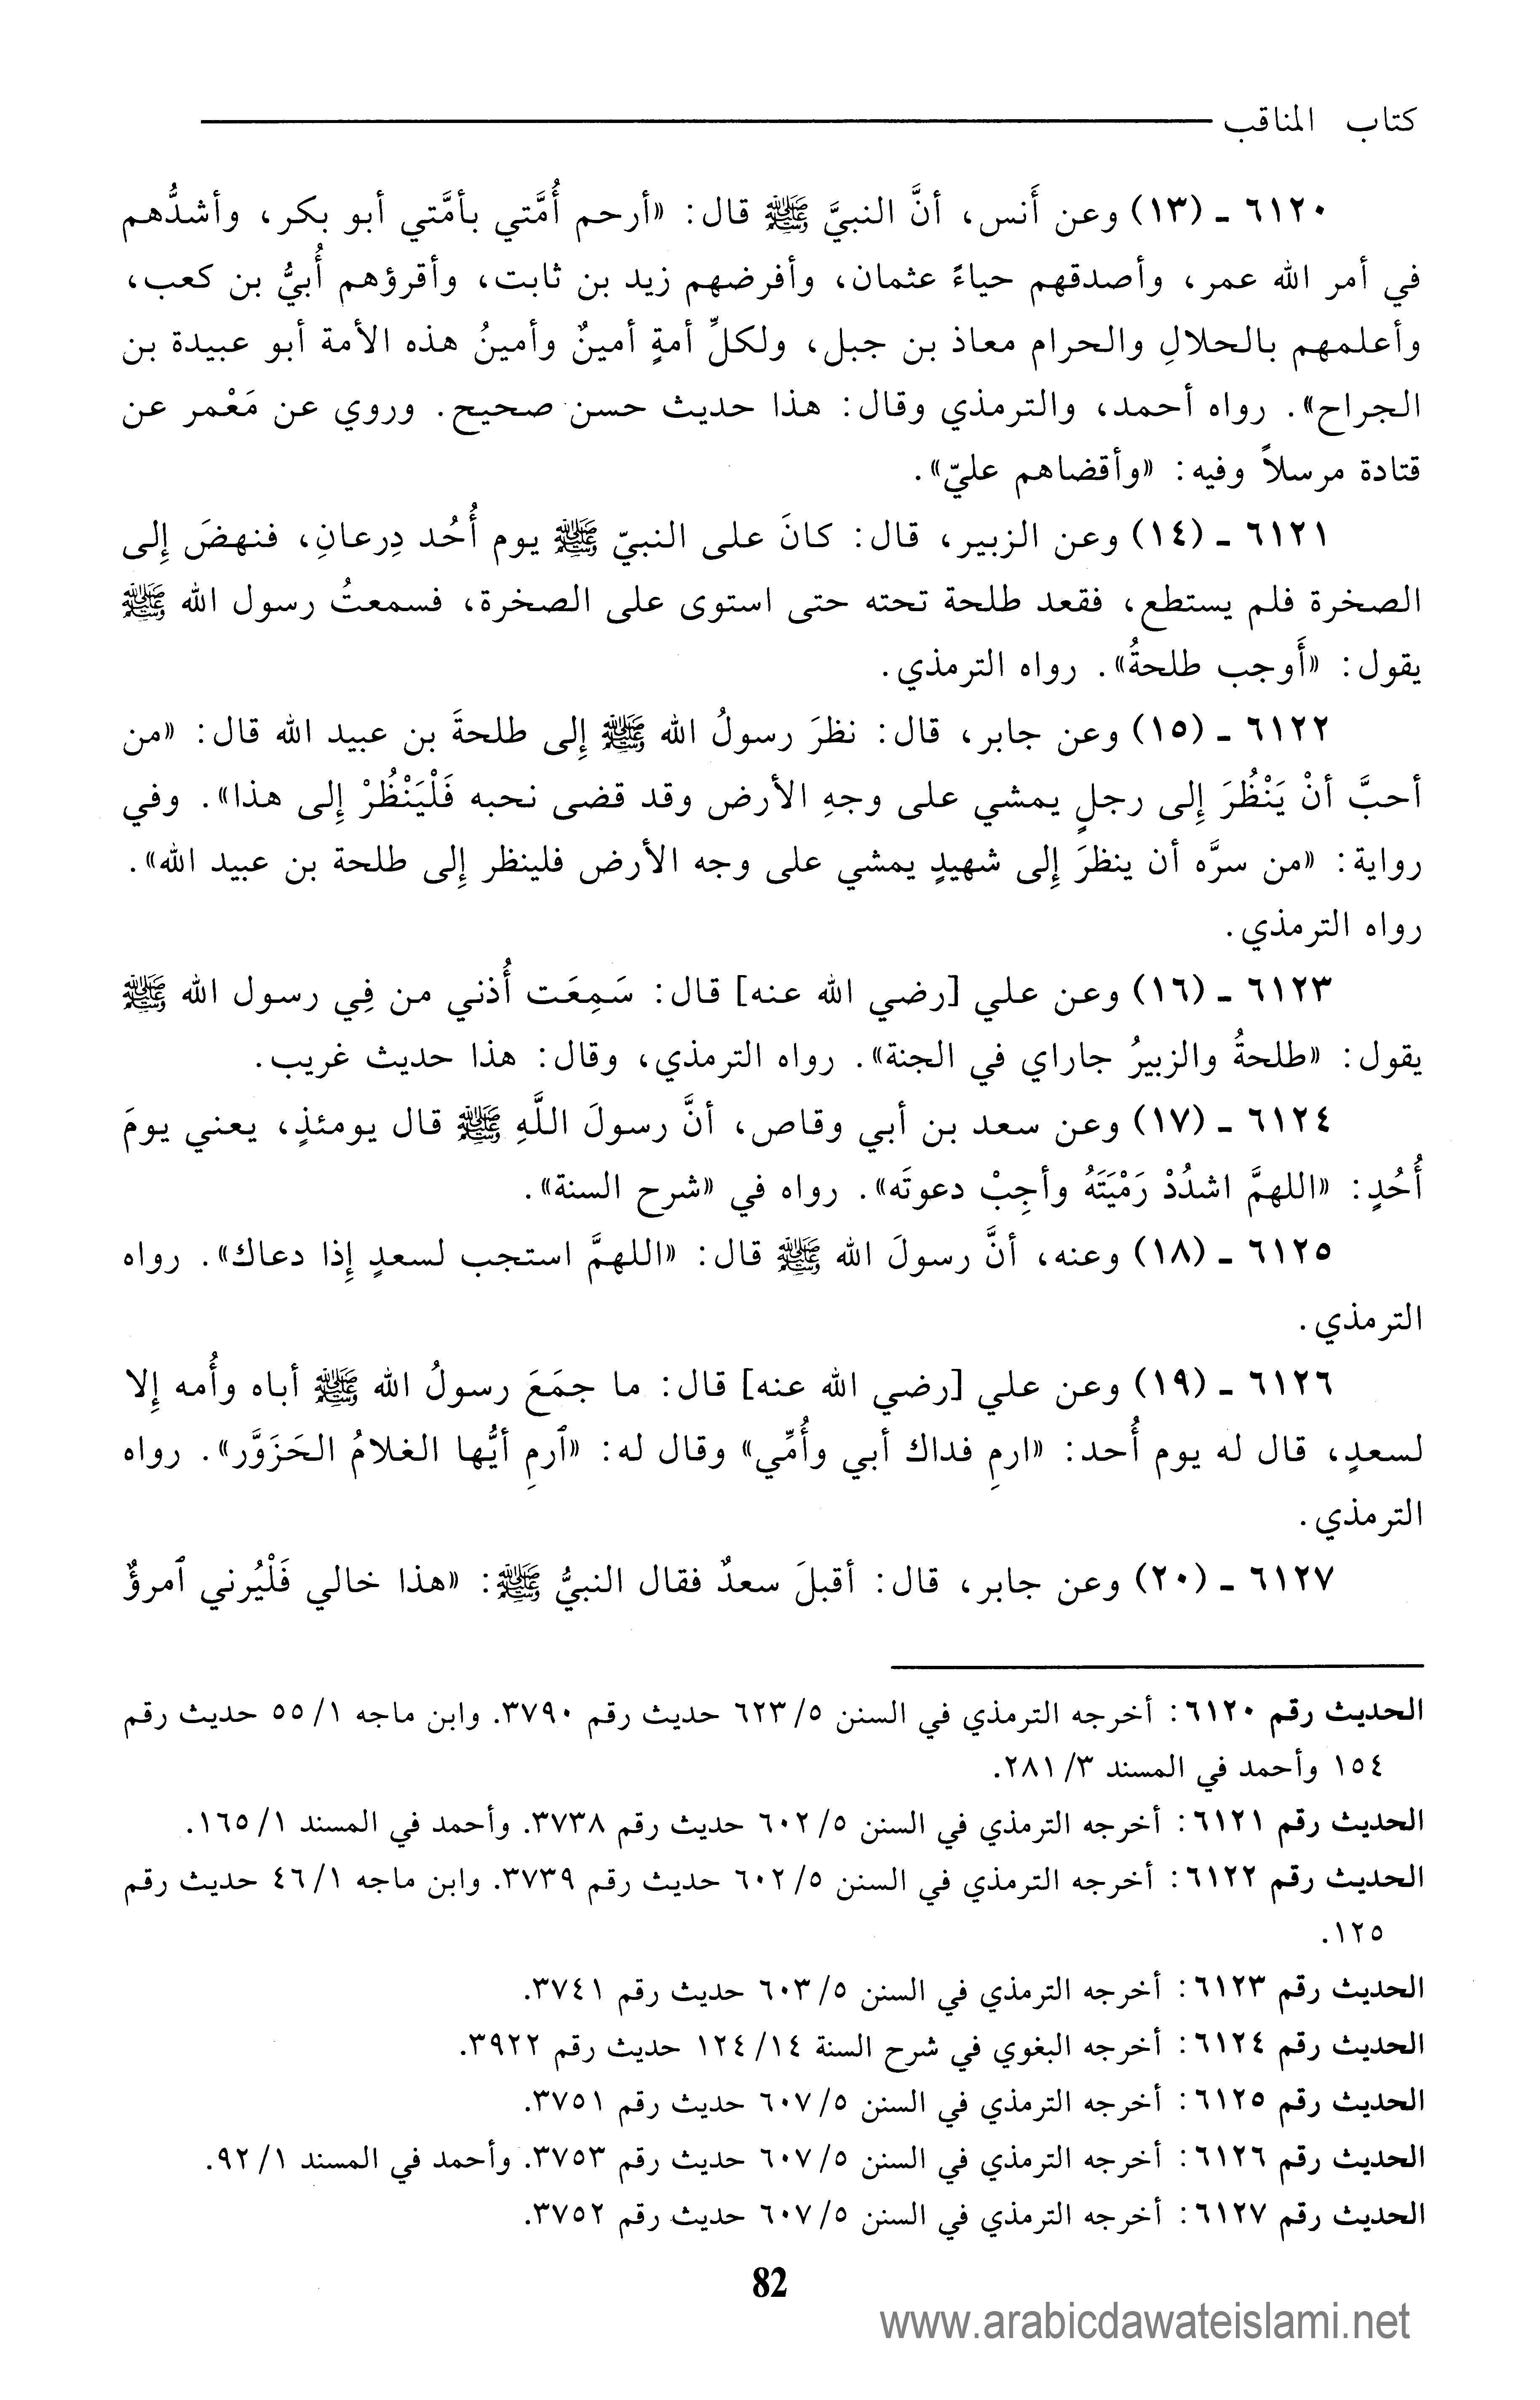 كتاب المناقب
٦١٢٠ ـ (١٣) وعن أَنس، أنَّ النبيَّ ﷺ قال: «أرحم أُمَّتي بأمَّتي أبو بكر، وأشدُّهم
في أمر الله عمر، وأصدقهم حياءً عثمان، وأفرضهم زيد بن ثابت، وأقرؤهم أُبيُّ بن كعب،
وأعلمهم بالحلالِ والحرام معاذ بن جبل، ولكلِّ أمةٍ أمينٌ وأمينُ هذه الأمة أبو عبيدة بن
الجراح». رواه أحمد، والترمذي وقال: هذا حديث حسن صحيح. وروي عن مَعْمر عن
قتادة مرسلاً وفيه: «وأقضاهم عليّ».
٦١٢١ ـ (١٤) وعن الزبير، قال: كانَ على النبيّ ﷺ يوم أُحُد دِرعانِ، فنهضَ إِلى
الصخرة فلم يستطع، فقعد طلحة تحته حتى استوى على الصخرة، فسمعتُ رسول الله ﷺ
يقول: «أَوجب طلحةُ». رواه الترمذي.
٦١٢٢ ـ (١٥) وعن جابر، قال: نظرَ رسولُ الله ﷺ إِلى طلحةَ بن عبيد الله قال: «من
أحبَّ أنْ يَنْظُرَ إِلى رجلٍ يمشي على وجهِ الأرض وقد قضى نحبه فَلْيَنْظُرْ إِلى هذا». وفي
رواية: «من سرَّه أن ينظرَ إِلى شهيدٍ يمشي على وجه الأرض فلينظر إِلى طلحة بن عبيد الله».
رواه الترمذي.
٦١٢٣ ـ (١٦) وعن علي [رضي الله عنه] قال: سَمِعَت أُذني من فِي رسول الله ﷺ
يقول: «طلحةُ والزبيرُ جاراي في الجنة». رواه الترمذي، وقال: هذا حديث غريب.
٦١٢٤ ـ (١٧) وعن سعد بن أبي وقاص، أنَّ رسولَ اللَّهِ ﷺ قال يومئذٍ، يعني يومَ
أُحُدٍ: «اللهمَّ اشدُدْ رَمْيَتَهُ وأجِبْ دعوتَه». رواه في «شرح السنة».
٦١٢٥ ـ (١٨) وعنه، أنَّ رسولَ الله ﷺ قال: «اللهمَّ استجب لسعدٍ إِذا دعاك». رواه
الترمذي.
٦١٢٦ ـ (١٩) وعن علي [رضي الله عنه] قال: ما جمَعَ رسولُ الله ﷺ أباه وأُمه إِلا
لسعدٍ، قال له يوم أُحد: «ارمِ فداك أبي وأُمِّي» وقال له: «ٱرمِ أيُّها الغلامُ الحَزَوَّر». رواه
الترمذي.
٦١٢٧ ـ (٢٠) وعن جابر، قال: أقبلَ سعدٌ فقال النبيُّ ﷺ: «هذا خالي فَلْيُرني ٱمرؤٌ
الحديث رقم ٦١٢٠: أخرجه الترمذي في السنن ٥/ ٦٢٣ حديث رقم ٣٧٩٠. وابن ماجه ١/ ٥٥ حديث رقم
١٥٤ وأحمد في المسند ٣/ ٢٨١.
الحديث رقم ٦١٢١: أخرجه الترمذي في السنن ٥/ ٦٠٢ حديث رقم ٣٧٣٨. وأحمد في المسند ١/ ١٦٥.
الحديث رقم ٦١٢٢: أخرجه الترمذي في السنن ٥/ ٦٠٢ حديث رقم ٣٧٣٩. وابن ماجه ١/ ٤٦ حديث رقم
١٢٥.
الحديث رقم ٦١٢٣: أخرجه الترمذي في السنن ٥/ ٦٠٣ حديث رقم ٣٧٤١.
الحديث رقم ٦١٢٤: أخرجه البغوي في شرح السنة ١٤/ ١٢٤ حديث رقم ٣٩٢٢.
الحديث رقم ٦١٢٥: أخرجه الترمذي في السنن ٥/ ٦٠٧ حديث رقم ٣٧٥١.
الحديث رقم ٦١٢٦: أخرجه الترمذي في السنن ٥/ ٦٠٧ حديث رقم ٣٧٥٣. وأحمد في المسند ١/ ٩٢.
الحديث رقم ٦١٢٧: أخرجه الترمذي في السنن ٥/ ٦٠٧ حديث رقم ٣٧٥٢.
82
www.arabicdawateislami.net